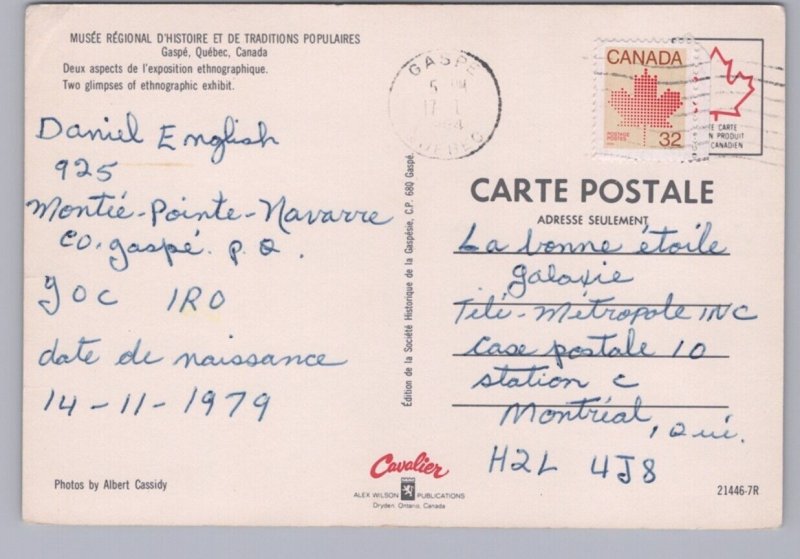 MUSÉE RÉGIONAL D'HISTOIRE ET DE TRADITIONS POPULAIRES
Gaspé, Québec, Canada
Deux aspects de l'exposition ethnographique.
Two glimpses of ethnographic exhibit.
Daniel English
925
Montée-Pointe-Navarre
co. gaspé. P.Q.
GOC 1RO
date de naissance
14-11-1979
Photos by Albert Cassidy
Édition de la Société Historique de la Gaspésie, C.P. 680 Gaspé.
Cavalier
ALEX WILSON PUBLICATIONS
Dryden, Ontario, Canada
GASPÉ
5 PM
17
QUÉBEC
CANADA
POSTAGE
POSTES
32
E CARTE
N PRODUIT
CANADIEN
CARTE POSTALE
ADRESSE SEULEMENT
La bonne étoile
galaxie
Télé-Métropole INC
case postale 10
station c
Montréal, Qué.
H2L 4J8
21446-7R